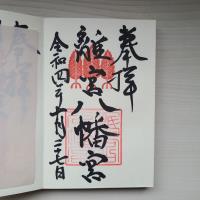 奉拝
離宮八幡宮
令和四年十月二十七日